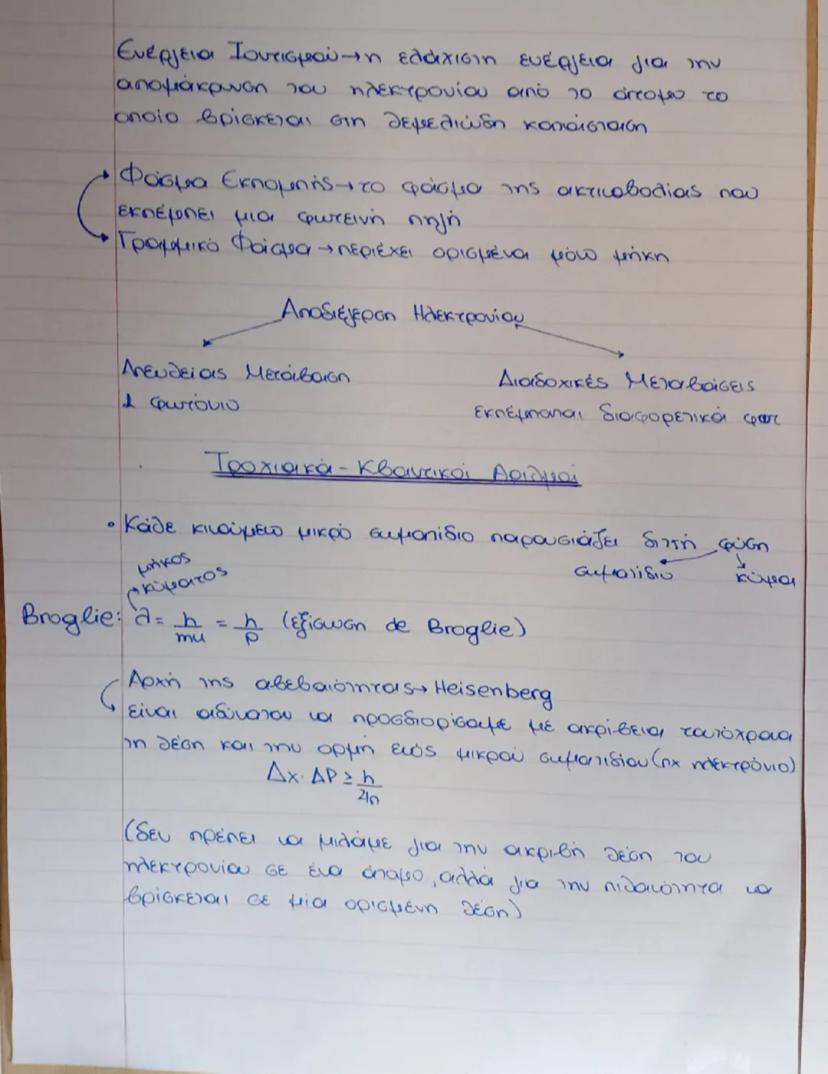 Ενέργεια Ιοντισμού → η ελάχιστη ενέργεια για την
απομάκρυνση του ηλεκτρονίου από το άτομο το
οποίο βρίσκεται στη θεμελιώδη κατάσταση
Φάσμα Εκπομπής → το φάσμα της ακτινοβολίας που
εκπέμπει μια φωτεινή πηγή
Γραμμικό Φάσμα → περιέχει ορισμένα μόνο μήκη
Αποδιέγερση Ηλεκτρονίου
Απευθείας Μετάβαση
1 φωτόνιο
Διαδοχικές Μεταβάσεις
εκπέμπονται διαφορετικά φωτ
Τροχιακά - Κβαντικοί Αριθμοί
• Κάθε κινούμενο μικρό σωματίδιο παρουσιάζει διττή φύση
σωματίδιο κύμα
μήκος
κύματος
Broglie: λ = h/mu = h/p (εξίσωση de Broglie)
Αρχή της αβεβαιότητας → Heisenberg
είναι αδύνατον να προσδιορίσουμε με ακρίβεια ταυτόχρονα
τη θέση και την ορμή ενός μικρού σωματιδίου (πχ ηλεκτρόνιο)
Δx · ΔP ≥ h/4π
(δεν πρέπει να μιλάμε για την ακριβή θέση του
ηλεκτρονίου σε ένα άτομο, αλλά για την πιθανότητα να
βρίσκεται σε μία ορισμένη θέση)